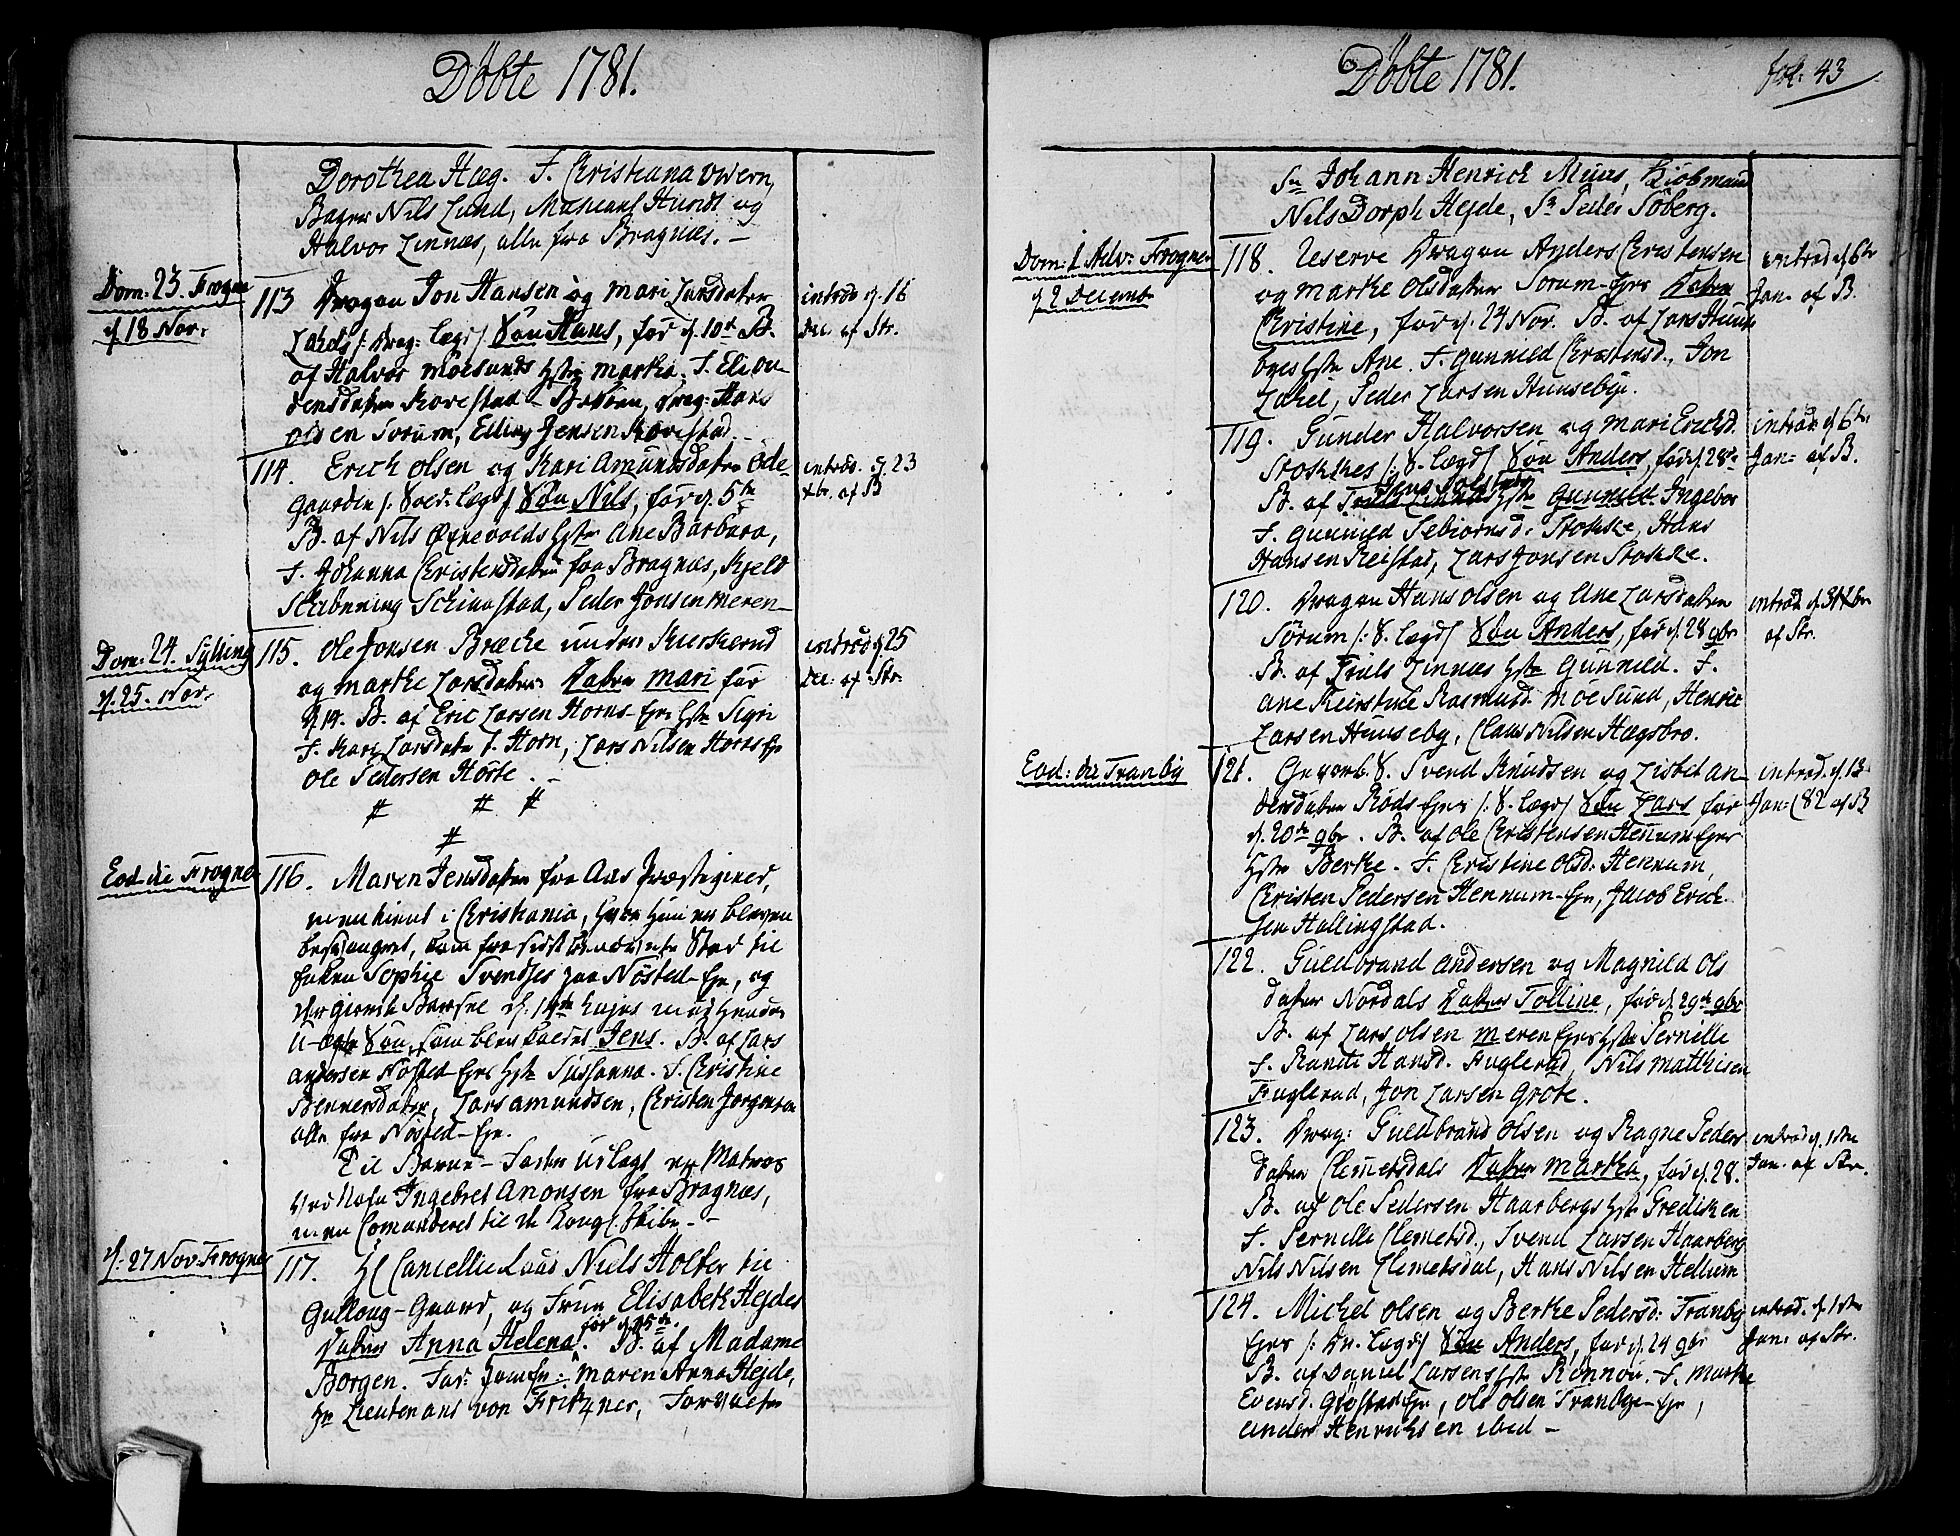 Döbte 1781.
Dorothea Hæg. F. Christiana Wiern,
Bager Nils Lund, Hundt og
Halvor Linnæs, alle fra Bragnæs. –
Dom: 23. Frogner
d. 18 Nov.
113 Dragon Jon Hansen og Mari Larsdatter
Lahels /: Drag: lægd/ Sön Hans, föd d. 10de B.
af Halvor Moesunds Hstr Martha. F. Eli
densdatter Kovestad – Drag: Hans
Olsen Sörum, Elling Jensen Kovestad.
introd. d. 16
Dec. af Str.
114. Erich Olsen og Kari Amundsdatter Öde-
gaarden /: Sold: lægd/ Sön Nils, föd d. 5te
B. af Nils Hstr Ane Barbara,
F. Johanna Christensdatter fra Bragnæs, Kjeld
Stabönning Schiaastad, Peder Jonsen Meren –
introd. d. 23
Xbr. af B
Dom: 24. Sylling
d. 25. Nov.
115. Ole Jonsen Bræche under
og Marthe Larsdatter Datter Mari föd
d. 14. B. af Eric Larsen Horns-Ejes Hstr Sigri
F. Kari Larsdatter Horn, Lars Nilsen Horns Ej
Ole Pedersen Hörte. –
# # #
#
introd d 25
Dec. af Str.
Eod: die Frogner
116. Maren Jensdatter fra Aas Præstegield,
men tient i Christiania, hvor hun er bleven
besvangret, kom fra sidst benævnte Stad til
Enken Sophie Svendses paa Nösted-Eje, og
der giorde Barsel d. 14de hujus med hendes
U-ægte Sön, som blev kaldet Jens. B. af Lars
Andersen Nösted Ejes Hstr Susanna. F. Christine
Bennersdatter, Lars Amundsen, Christen Jörgensen
alle fra Nösted-Eje.
Til Barne-Fader udlagt er Matros
ved Navn Ingebret Anonsen fra Bragnæs,
men Comanderet til de Kongl: Skibe. –
d. 27 Nov. Frogner
117. Hr Cancellie Raad Niels Holter til
Gulloug-Gaard, og Frue Elisabeth Hejdes
föd d. 25de.
Datter Anna Helena. B. af Madame
Borgen. Fad: Jomfr: Maren Anna Hejde,
Hr Lieutenant von Fritzner, Forvalter
Döbte 1781.
fol: 43
Sr Johann Henrich Muus, Kiöbmand
Nils Dorph Hejde, Sr Peder Söberg.
Dom: 1 Adv: Frogner
d. 2 Decemb.
118. Reserve Dragon Anders Christensen
og Marthe Olsdatter Sörum-Ejes Datter
Christine, föd d. 24 Nov. B. af Lars Huuse
byes Hstr Ane. F. Gunnild Christensd., Jon
Lahel, Peder Larsen Huusebye.
introd d 6te
Jan. af B.
119. Gunder Halvorsen og Mari Ericsd.
Stokkes /: S. lægd/ Sön Anders, föd d. 28de
B. af Hstr Gunnild Ingebor
F. Gunnild Tebiornsd. Stokke, Hans
Hansen Reistad, Lars Jonsen Stokke.
introd d 6te
Jan. af B.
120. Dragon Hans Olsen og Ane Larsdatter
Sörum /: S. lægd/ Sön Anders, föd d. 28 9br
B. af Niels Linnæs Hstr Gunnild. F.
Ane Kierstine Rasmusd. Moesund, Henric
Larsen Huuseby, Claus Nilsen Hægsbro.
introd d. 31 Xbr
af Str.
Eod: die Tranby
121. Gevorb. S. Svend Knudsen og Lisbet An-
dersdatter Röds Ejes /: S. lægd/ Sön Lars föd
d. 20de 9br. B. af Ole Christensen Hennum Ejes
Hstr Berthe. F. Christine Olsd. Hennum,
Christen Pedersen Hennum-Eje, Jacob Erich
sen Hallingstad.
introd. d. 13
Jan: (82 af B
122. Guldbrand Andersen og Magnild Ols
datter Nordals Datter Tolline, föd d. 29de 9br
B. af Lars Olsen Meren Ejes Hstr Pernille
F. Randi Hansd. Fuglerud, Nils Matthisen
Fuglerud, Jon Larsen Gröte.
123. Drag: Guldbrand Olsen og Ragne Peders
datter Clemetsdals Datter Martha, föd d. 28.
B. af Ole Pedersen Haarbergs Hstr Gredische
F. Pernille Clemetsd., Svend Larsen Haarberg
Nils Nilsen Clemetsdal, Hans Nilsen Hellum
introd d. 1ste
Jan. af Str.
124. Michel Olsen og Berthe Pedersd: Tranby
Ejes /: Dr. lægd/ Sön Anders, föd d. 24 9br
B. af Daniel Larsens Hstr Rönnou. F. Marthe
Evensd. Gröstad Eje, Ole Olsen Tranbye-Eje,
Anders Henrichsen ibid –
introd. d. 1ste
Jan: af Str.